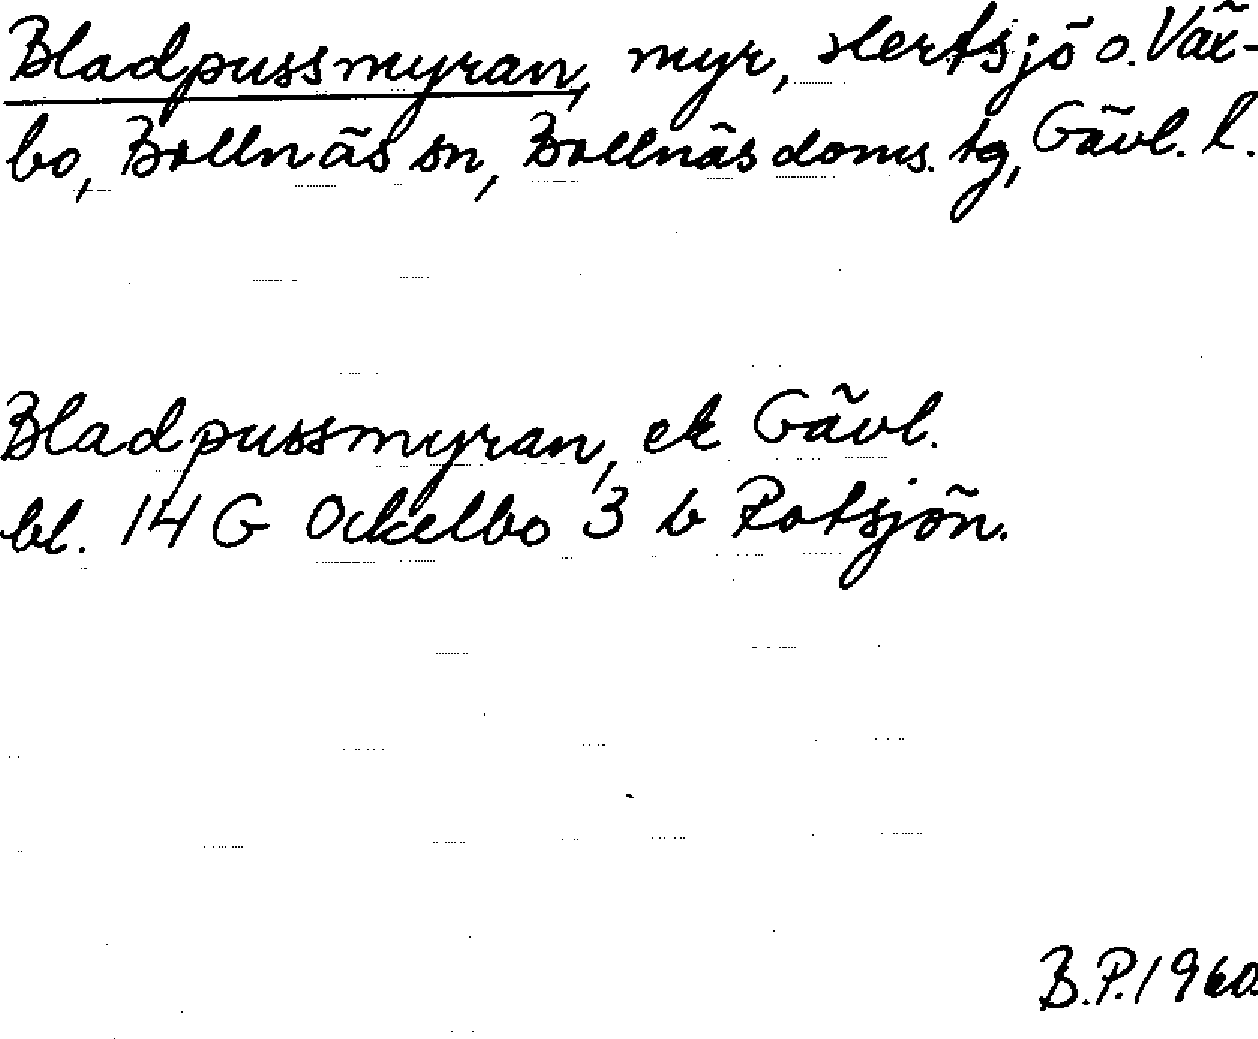 Bladpussmyran, myr, Hertsjö o. Väx-
bo, Bollnäs sn, Bollnäs doms. tg, Gävl. l.
Bladpussmyran, ek Gävl.
bl. 14 G Ockelbo 3 b Rotsjön.
B.P. 1960.